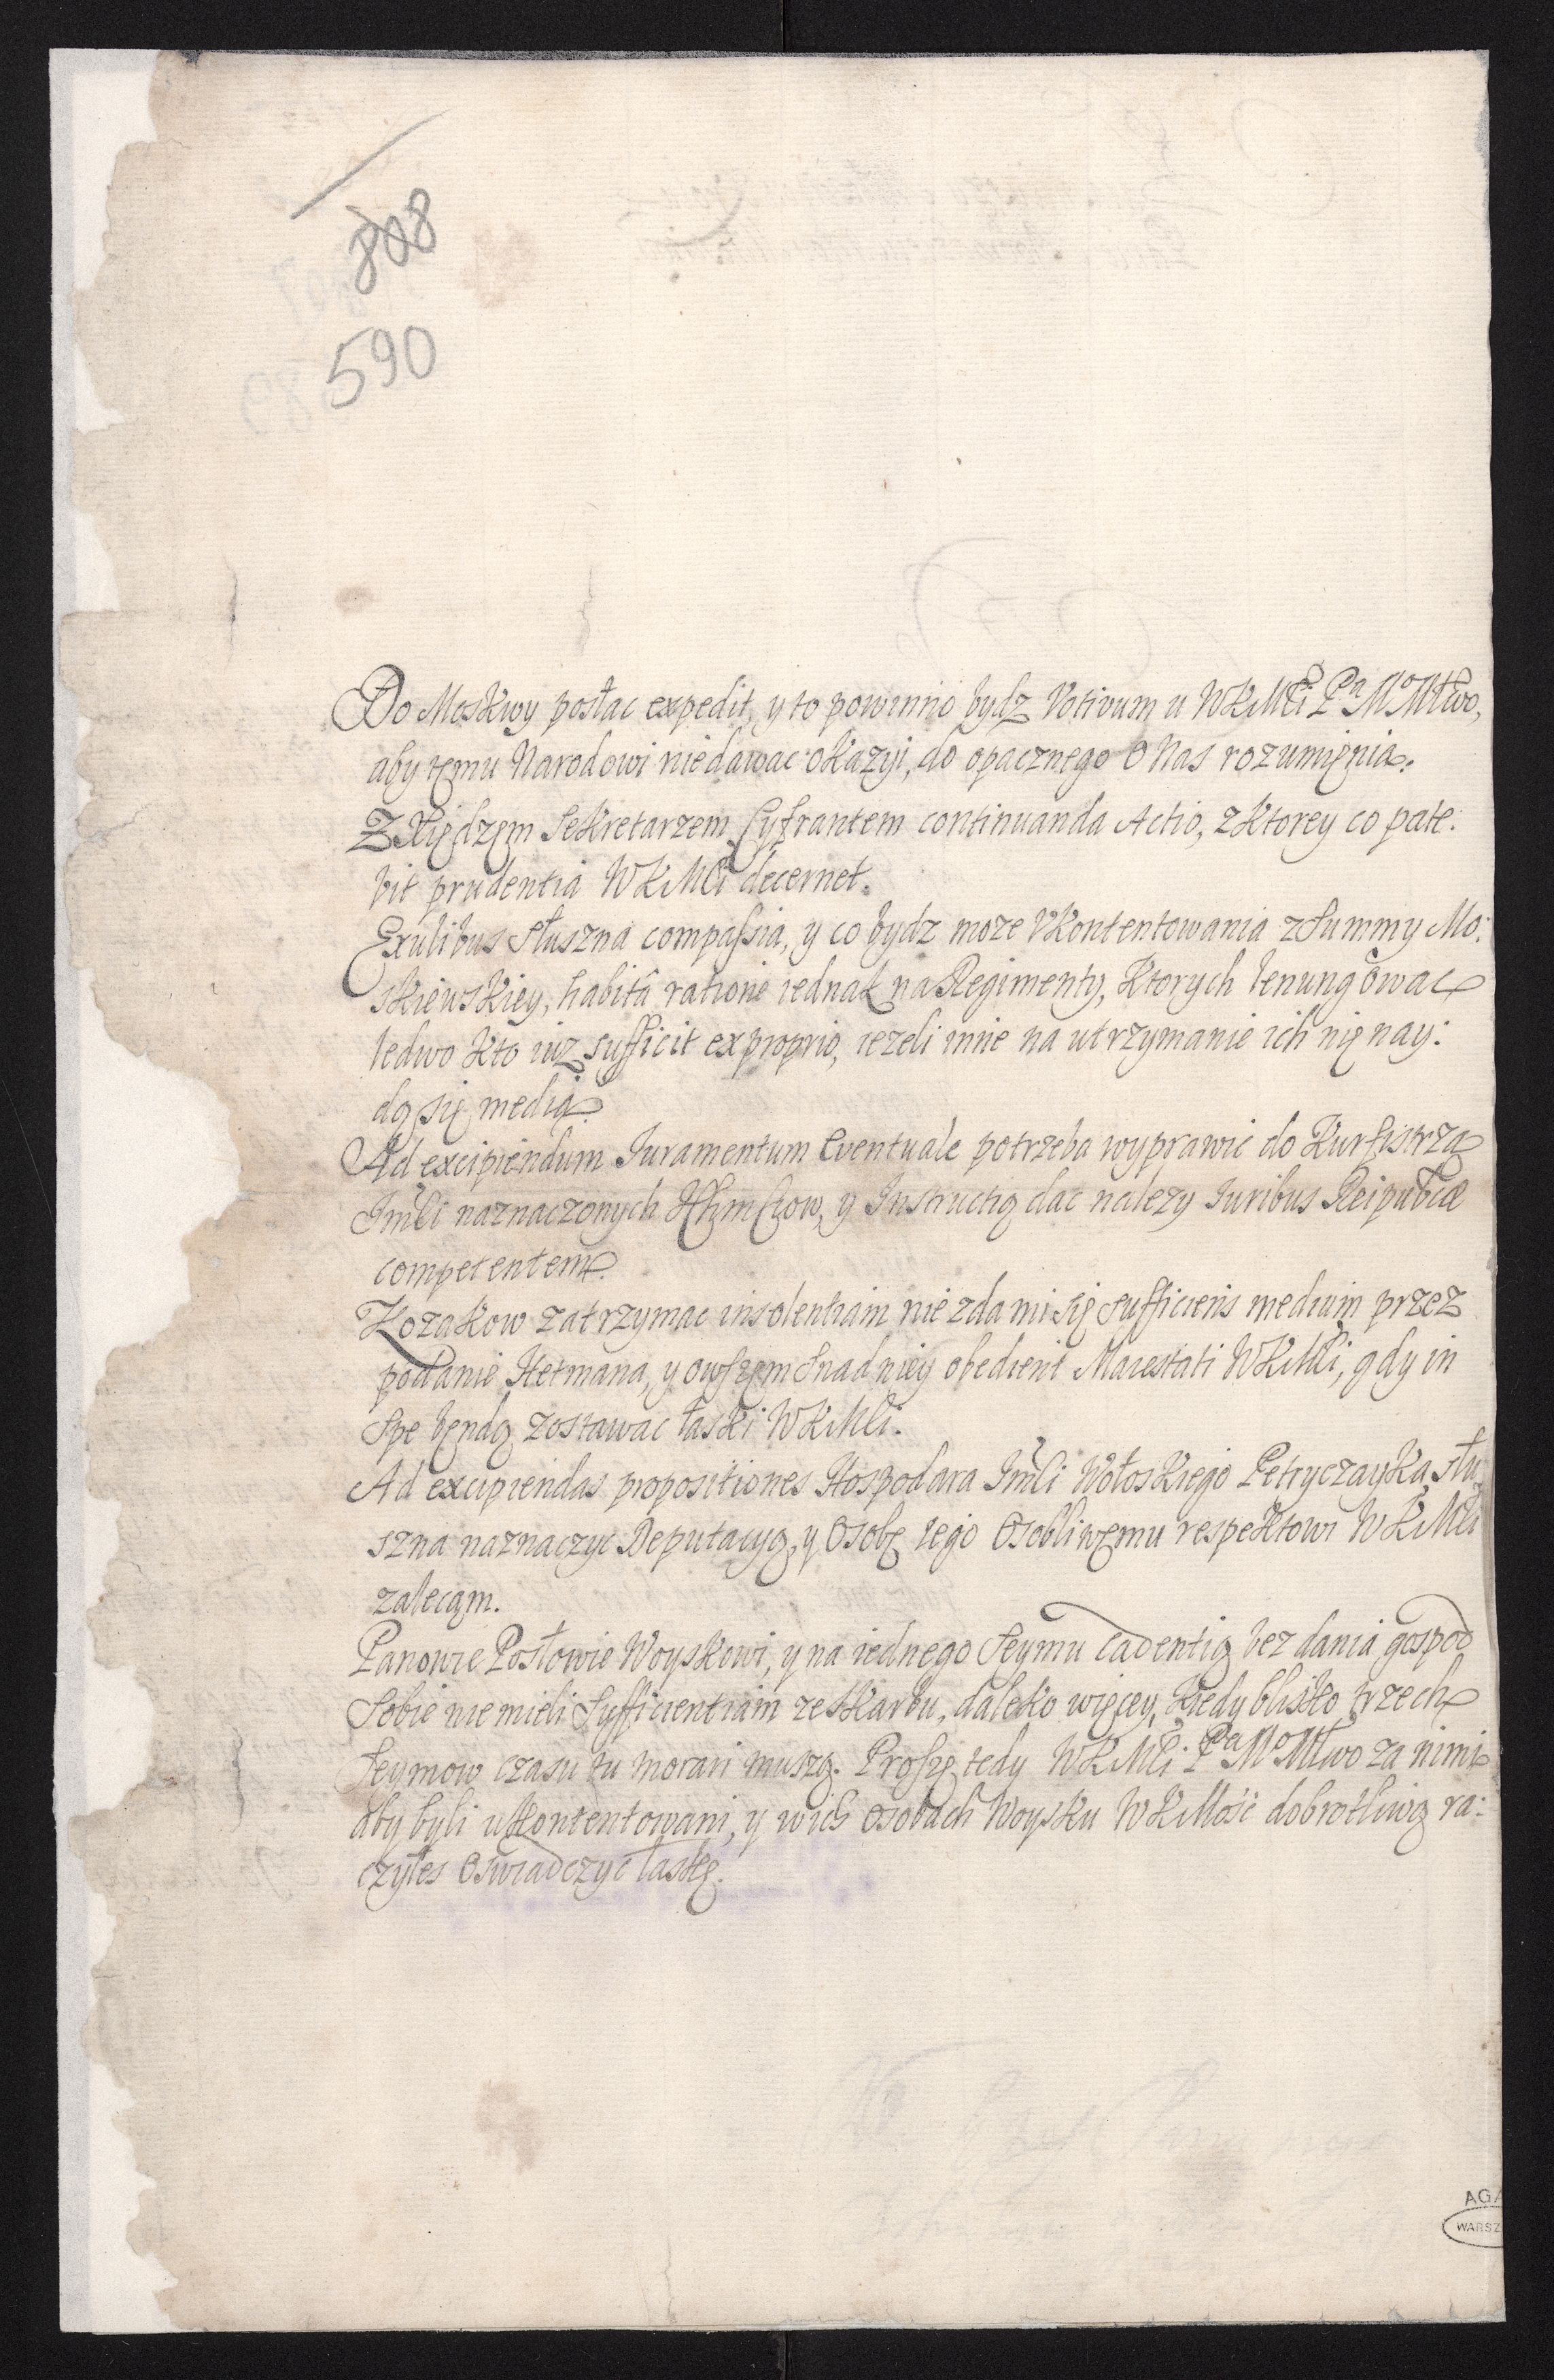 808
590
Do Moskwy posłac expedit, y to powinno bydz Votivum u WKMCi Pa Mo Młwo,
aby temu Narodowi niedawac okazyi, do opacznego o Nas rozumięnia.
Z Xiędzęm Sekretarzem Cyfrantem continuanda Actio, z ktorey co pate:
bit prudentia WKMCi decernet.
Exulibus słuszna compassia, y co bydz moze Vkontentowania z Summy Mo:
skiewskiey, habitâ ratione iednak na Regimenty, ktorych lenungowac
ledwo kto iuz sufficit ex proprio, iezeli inne na utrzymanie ich nię nay:
dą się media.
Ad excipiendum Iuramentum Eventuale potrzeba wyprawic do Kurfistrza
Imci naznaczonych Ichmciow, y Instructią dac nalezy Iuribus Reipublcæ
competentem.
Kozakow zatrzymac insolentiam nie zda mi się sufficiens medium przez
podanie Hetmana, y owszęm snadniey obedient Maiestati WKMCi, gdy in
spe będą zostawac łaski WKMCi.
Ad excipiendas propositiones Hospodara Imci Wołoskiego Petryczayka, słu
szna naznaczyc Deputacyą, y Osobę iego Osobliwęmu respektowi WKMCi
zalecąm.
Panowie Posłowie Woyskowi, y na iednego Seymu cadentią bez dania gospod
sobie nie mieli sufficientiam ze skarbu, daleko więcey, kiedy blisko trzech
Seymow czasu tu morari muszą. Proszę tedy WKMCi Pa Mo Młwo za nimi
aby byli ukontentowani, y w ich osobach Woysku WKMość dobrotliwą ra:
czyłes Oswiadczyc łaskę.
AGA
WARSZ